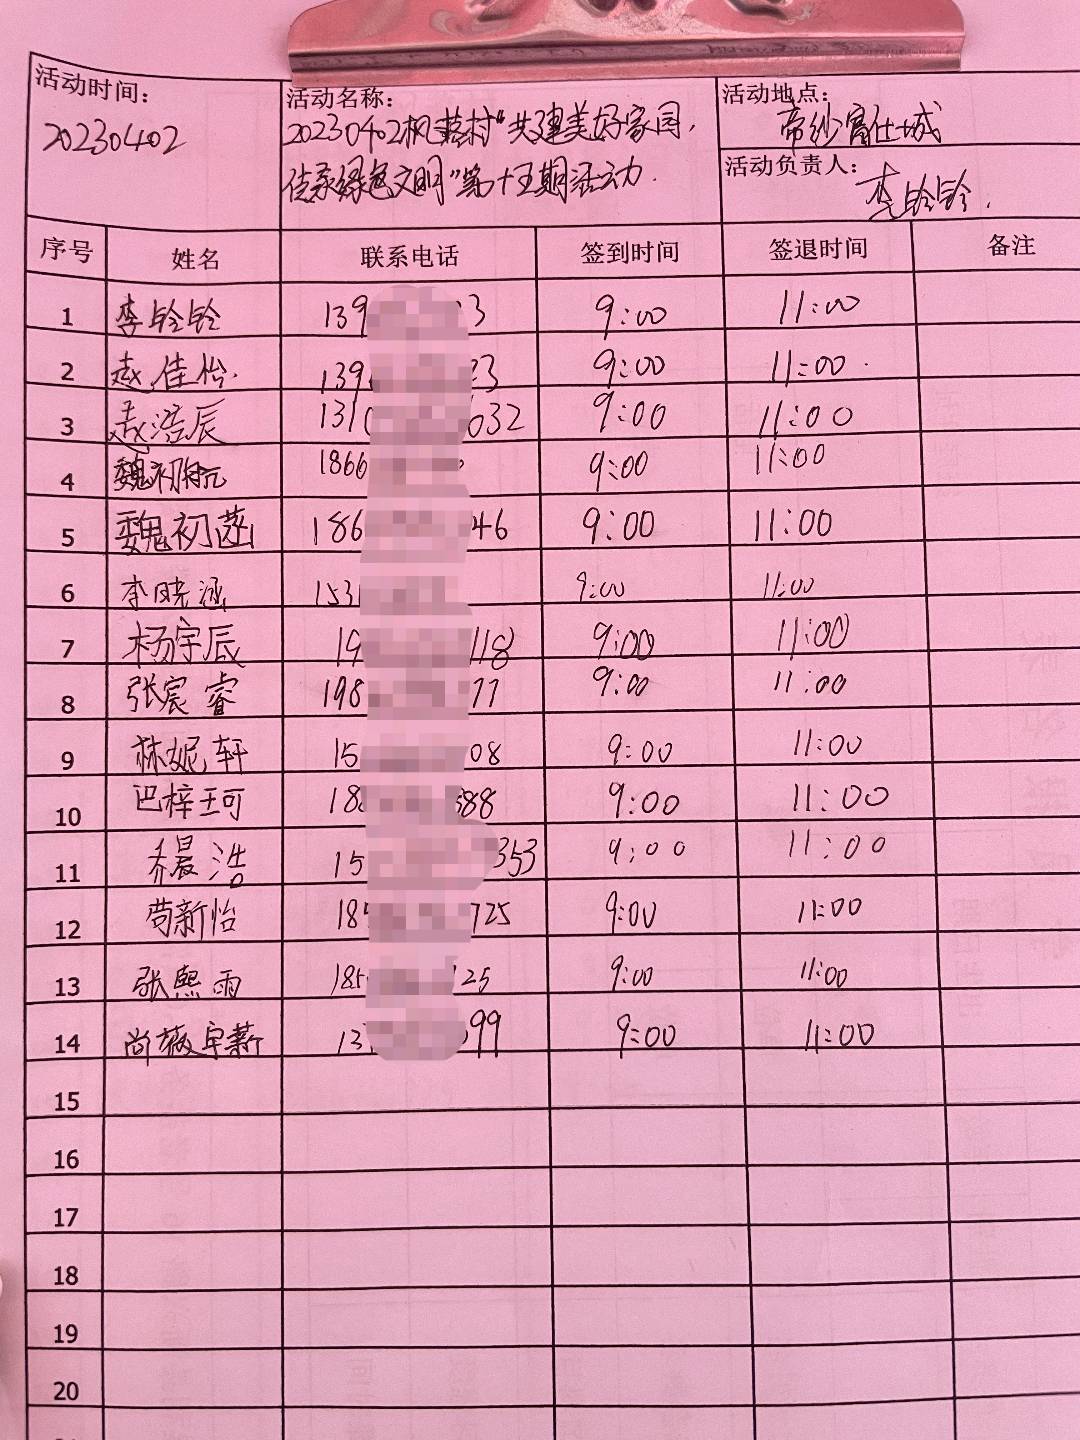 活动时间：
20230402
活动名称：
20230402枫林村“共建美好家园，
传承绿色文明”第十五期活动.
活动地点：
帝纱富仕城
活动负责人：
李铃铃.
序号 姓名 联系电话 签到时间 签退时间 备注
1 李铃铃 139 3 9:00 11:00
2 赵佳怡. 139 23 9:00 11:00.
3 赵浩辰 131 032 9:00 11:00
4 魏初航 1866 9:00 11:00
5 魏初菡 186 46 9:00 11:00
6 李晓涵 153 9:00 11:00
7 杨宇辰 19 118 9:00 11:00
8 张宸睿 198 77 9:00 11:00
9 林妮轩 15 08 9:00 11:00
10 巴梓珂 18 88 9:00 11:00
11 乔晨浩 15 353 9:00 11:00
12 苟新怡 18 725 9:00 11:00
13 张熙雨 185 25 9:00 11:00
14 尚薇宇薪 13 99 9:00 11:00
15
16
17
18
19
20